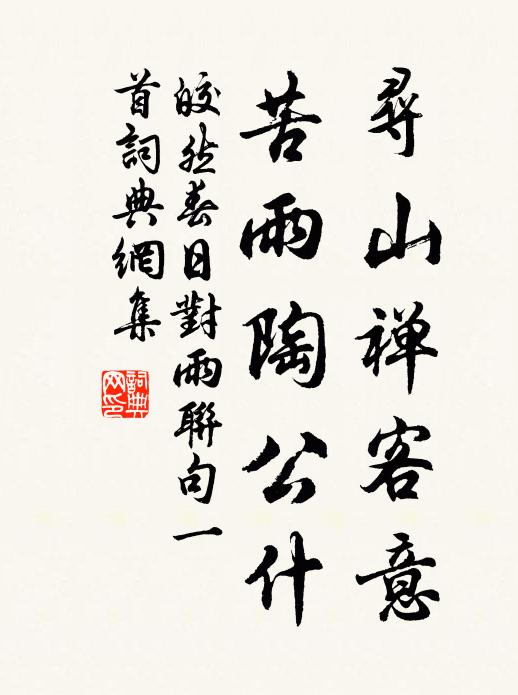 尋山禅客意
苦雨陶公什
皎然春日對雨聯句一
首詞典網集
詞典
网印